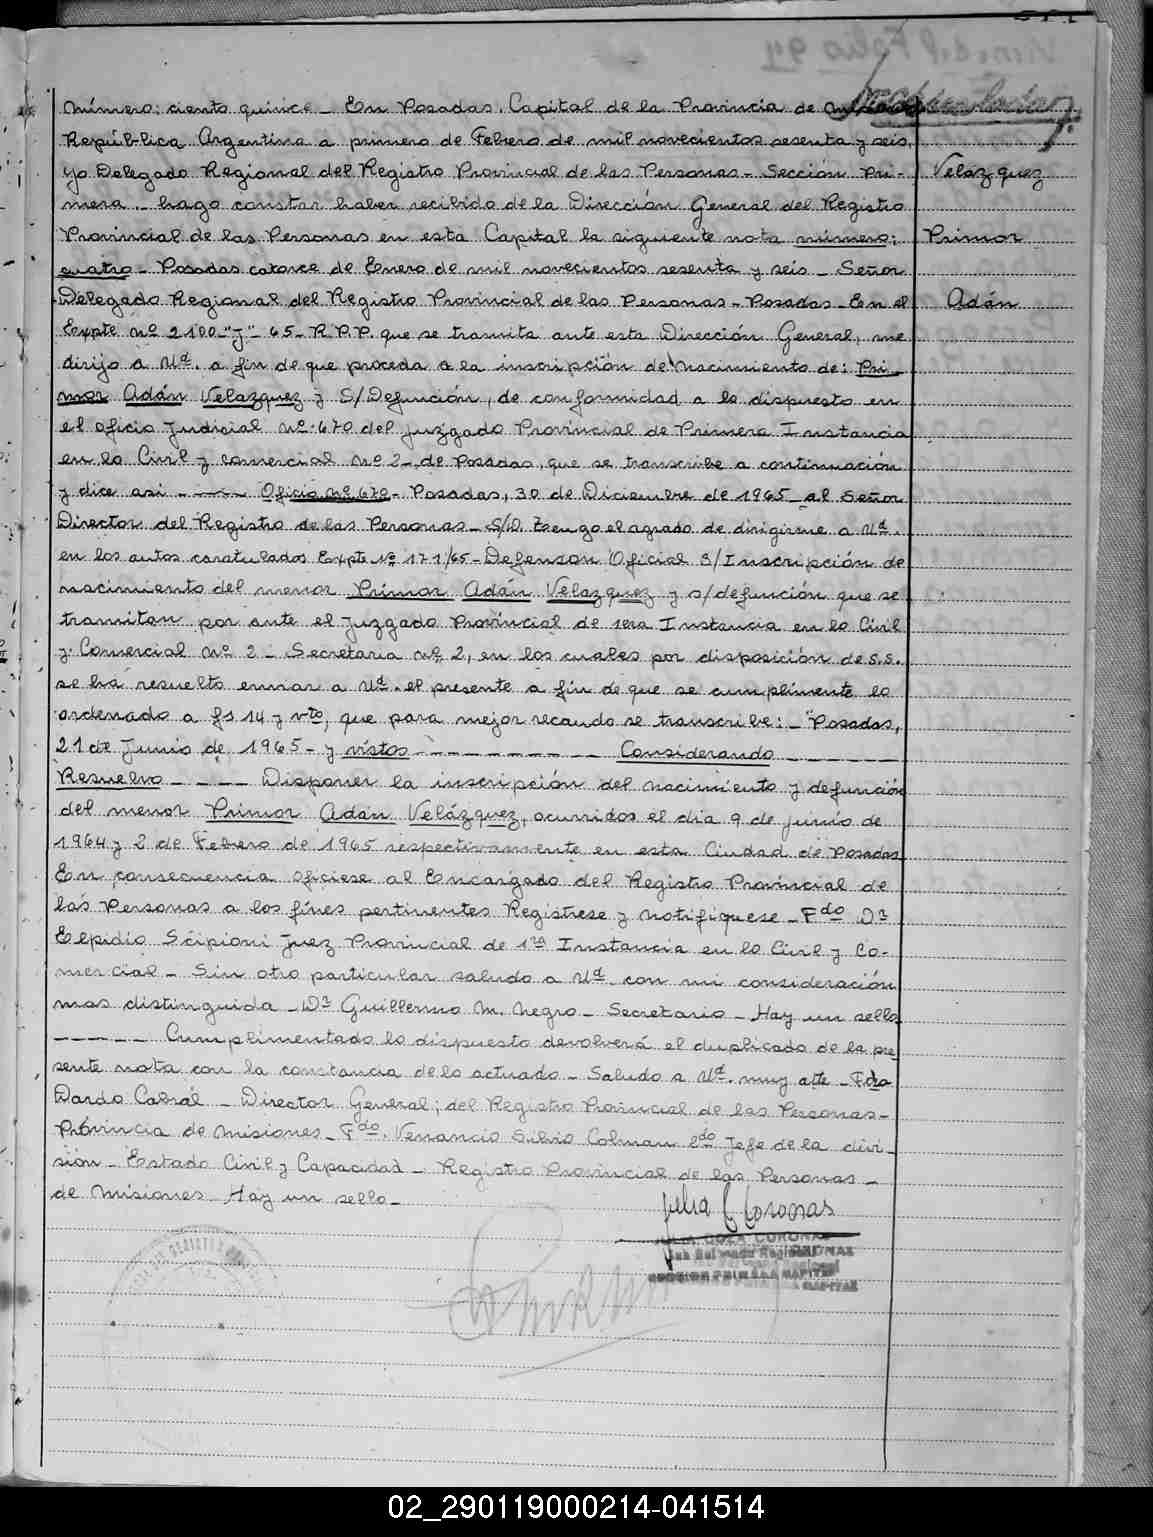 Número: ciento quince - En Posadas, Capital de la Provincia de
República Argentina a primero de Febrero de mil novecientos sesenta y seis,
yo Delegado Regional del Registro Provincial de las Personas - Sección Pri-
mera - hago constar haber recibido de la Dirección General del Registro
Provincial de las Personas en esta Capital la siguiente nota número:
cuatro - Posadas catorce de Enero de mil novecientos sesenta y seis - Señor
Delegado Regional del Registro Provincial de las Personas - Posadas - En el
Expte Nº 2100-"J"-65-R.P.P. que se tramita ante esta Dirección General, me
dirijo a Ud. a fin de que proceda a la inscripción de Nacimiento de: Pri-
mor Adán Velazquez y S/Defunción, de conformidad a lo dispuesto en
el oficio Judicial Nº 670 del Juzgado Provincial de Primera Instancia
en lo Civil y Comercial Nº 2 - de Posadas, que se transcribe a continuación
y dice asi - ---- Oficio Nº 670 - Posadas, 30 de Diciembre de 1965 - al Señor
Director del Registro de las Personas - S/D. Tengo el agrado de dirigirme a Ud.
en los autos caratulados Expte Nº 171/65 - Defensor Oficial S/Inscripción de
nacimiento del menor Primor Adán Velazquez y s/defunción que se
tramitan por ante el Juzgado Provincial de 1era Instancia en lo Civil
y Comercial Nº 2 - Secretaria Nº 2, en los cuales por disposición de S.S.
se ha resuelto enviar a Ud. el presente a fin de que se cumplimente lo
ordenado a fs 14 y vto, que para mejor recaudo se transcribe: - "Posadas,
21 de Junio de 1965 - y vistos - - - - - - - - Considerando - - - - -
Resuelvo - - - - Disponer la inscripción del nacimiento y defunción
del menor Primor Adán Velázquez, ocurridos el día 9 de Junio de
1964 y 2 de Febrero de 1965 respectivamente en esta Ciudad de Posadas
En consecuencia oficiese al Encargado del Registro Provincial de
las Personas a los fines pertinentes Registrese y notifiquese - Fdo Dr
Elpidio Scipioni Juez Provincial de 1ra Instancia en lo Civil y Co-
mercial - Sin otro particular saludo a Ud. con mi consideración
mas distinguida - Dr Guillermo M. Negro - Secretario - Hay un sello
- - - - - Cumplimentado lo dispuesto devolverá el duplicado de la pre-
sente nota con la constancia de lo actuado - Saludo a Ud. muy atte - Fdo
Dardo Cabrál - Director General, del Registro Provincial de las Personas -
Provincia de Misiones - Fdo. Venancio Silvio Colman 2do Jefe de la divi-
sión - Estado Civil y Capacidad - Registro Provincial de las Personas -
de Misiones - Hay un sello -
Velazquez
Primor
Adán
Julia C Coronas
02_290119000214-041514